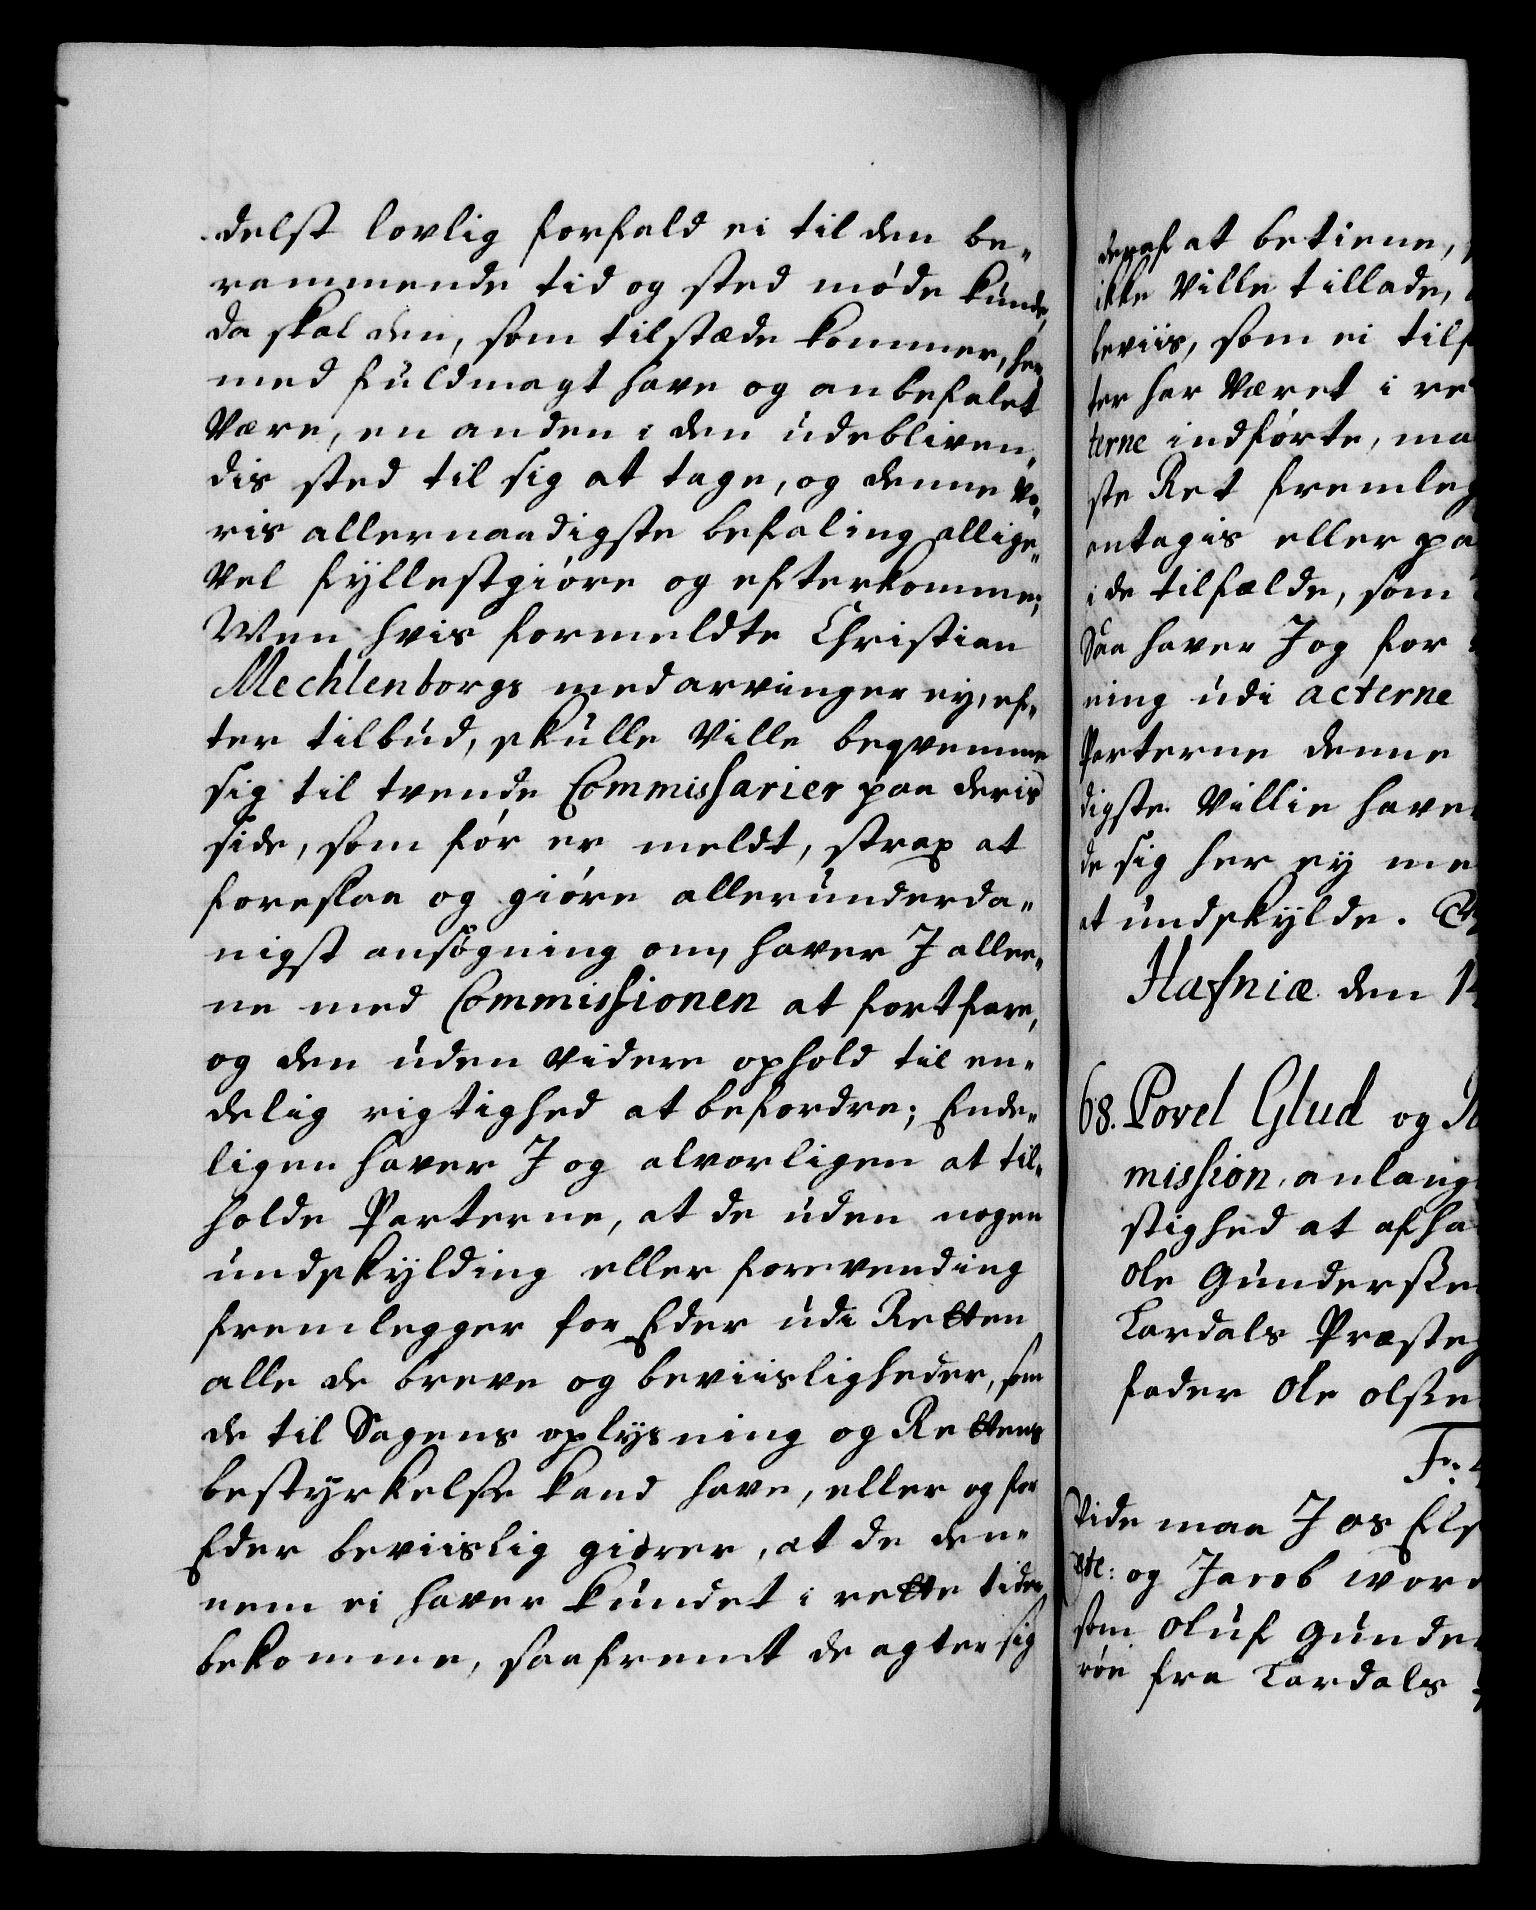 delst lovlig forfald ei til den be„
rammende tid og sted møde kunde,
da skal den, som tilstæde kommer, her
med fuldmagt have og anbefalet
være, en anden i den udebliven„
dis sted til sig at tage, og denne vo„
ris allernaadigste befaling allige„
vel fyllestgiøre og efterkomme;
Men hvis formeldte Christian
Mechlenborgs medarvinger ey, ef„
ter tilbud, skulle ville beqvemme
sig til tvende Commissarier paa deris
side, som før er meldt, strax at
foreslaa og giøre allerunderda„
nigst ansøgning om, haver I allee„
ne med Commissionen at fortfare,
og den uden videre ophold til en„
delig rigtighed at befordre; Ende„
ligen haver I og alvorligen at til„
holde Parterne, at de uden nogen
undskylding eller forevending
fremlegger for Eder udi Retten
alle de breve og beviisligheder, som
de til Sagens oplysning og Rettens
bestyrkelse kand have, eller og for
Eder beviislig giører, at de den„
nem ei haver kundet i rette tide
bekomme, saafremt de agter sig
deraf at betiene,
ikke ville tillade,
beviis, som ei tilf
ter har været i re
terne indførte, ma
ste Ret fremleg
antagis eller pa
i de tilfælde, som
Saa haver I og for
ning udi acterne
Parterne denne
digste Villie have
de sig her ey me
at undskylde.
Hafniæ den 1
68. Povel Glud og
mission, anlang
stighed at afha
Ole Gunderssen
Lardals Præsteg
fader Ole olssen
Fr: 4
Vide maa I os Els
etc: og Jacob Word
som Oluf Gunder
røn fra Lardals